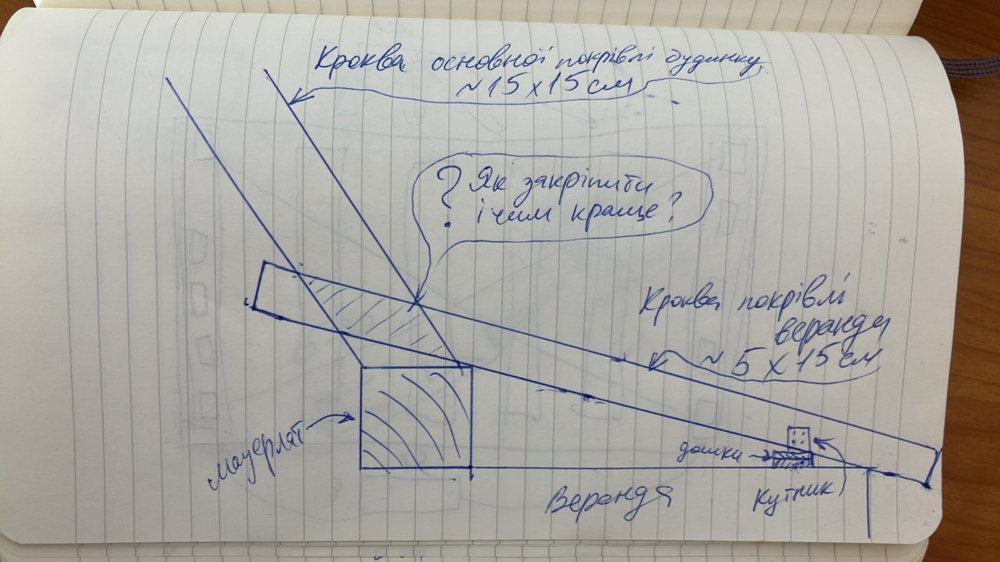 Кроква основної покрівлі будинку
~15х15см
? Як закріпити
і чим краще?
Кроква покрівлі
веранди
~ 5 х 15см
мауерлат
дошка
Кутник
Веранда